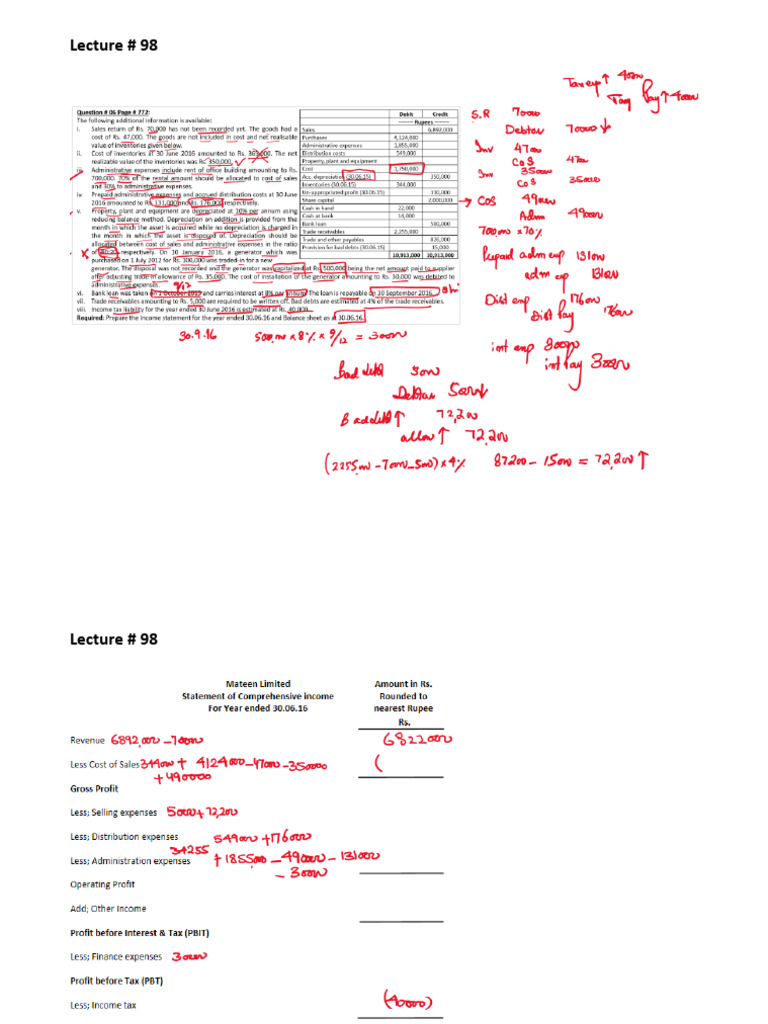 Lecture # 98
Tax exp ↑ 40000
Tax Pay ↑ 40000
Question # 06 Page # 772:
The following additional information is available:
i. Sales return of Rs. 70,000 has not been recorded yet. The goods had a
cost of Rs. 47,000. The goods are not included in cost and net realisable
value of inventories given below.
ii. Cost of inventories at 30 June 2016 amounted to Rs. The net
realizable value of the inventories was Rs. 350,000.
iii. Administrative expenses include rent of office building amounting to Rs.
700,000. 70% of the rental amount should be allocated to cost of sales
and 30% to administrative expenses.
iv. Prepaid administrative expenses and accrued distribution costs at 30 June
2016 amounted to Rs. 131,000 and Rs. 176,000 respectively.
v. Property, plant and equipment are depreciated at 10% per annum using
reducing balance method. Depreciation on addition is provided from the
month in which the asset is acquired while no depreciation is charged in
the month in which the asset is disposed of. Depreciation should be
allocated between cost of sales and administrative expenses in the ratio
of respectively. On 10 January 2016, a generator which was
purchased on 1 July 2012 for Rs. 300,000 was traded-in for a new
generator. The disposal was not recorded and the generator was capitalized at Rs. 500,000 being the net amount paid to supplier
after adjusting trade of allowance of Rs. 35,000. The cost of installation of the generator amounting to Rs. 30,000 was debited to
administrative expenses.
9/12
vi. Bank loan was taken on 1 October 2015 and carries interest at 8% per annum. The loan is repayable on 30 September 2016.
vii. Trade receivables amounting to Rs. 5,000 are required to be written off. Bad debts are estimated at 4% of the trade receivables.
viii. Income tax liability for the year ended 30 June 2016 is estimated at Rs. 40,000.
Required: Prepare the Income statement for the year ended 30.06.16 and Balance sheet as at 30.06.16.
Debit Credit
------- Rupees -------
Sales 6,892,000
Purchases 4,124,000
Administrative expenses 1,855,000
Distribution costs 549,000
Property, plant and equipment
Cost 1,750,000
Acc. depreciation (30.06.15) 350,000
Inventories (30.06.15) 344,000
Un-appropriated profit (30.06.15) 130,000
Share capital 2,000,000
Cash in hand 22,000
Cash at bank 14,000
Bank loan 500,000
Trade receivables 2,255,000
Trade and other payables 826,000
Provision for bad debts (30.06.15) 15,000
10,913,000 10,913,000
S.R 70000
Debtor 70000 ↓
Inv 47000
CoS 47000
Inv 350000
CoS 350000
→ COS 490000
Adm 490000
700,000 x 70%
Prepaid adm exp 131000
adm exp 131000
Dist exp 176000
Dist Pay 176000
int exp 30000
int pay 30000
30.9.16 500,000 x 8% x 9/12 = 30000
Bad debt 5000
Debtor 5000
Bad debt ↑ 72,200
allow ↑ 72,200
(2255,000 - 70000 - 5000) x 4% 87200 - 15000 = 72,200 ↑
Lecture # 98
Mateen Limited
Statement of Comprehensive income
For Year ended 30.06.16
Amount in Rs.
Rounded to
nearest Rupee
Rs.
Revenue 6892,000 - 70000 6822000
Less Cost of Sales 344000 + 4124000 - 47000 - 350000 (
+ 490000
Gross Profit
Less; Selling expenses 5000 + 72,200
Less; Distribution expenses 549000 + 176000
34255
Less; Administration expenses + 1855,000 - 490000 - 131000
- 30000
Operating Profit
Add; Other Income
Profit before Interest & Tax (PBIT)
Less; Finance expenses 30000
Profit before Tax (PBT)
Less; Income tax (40000)